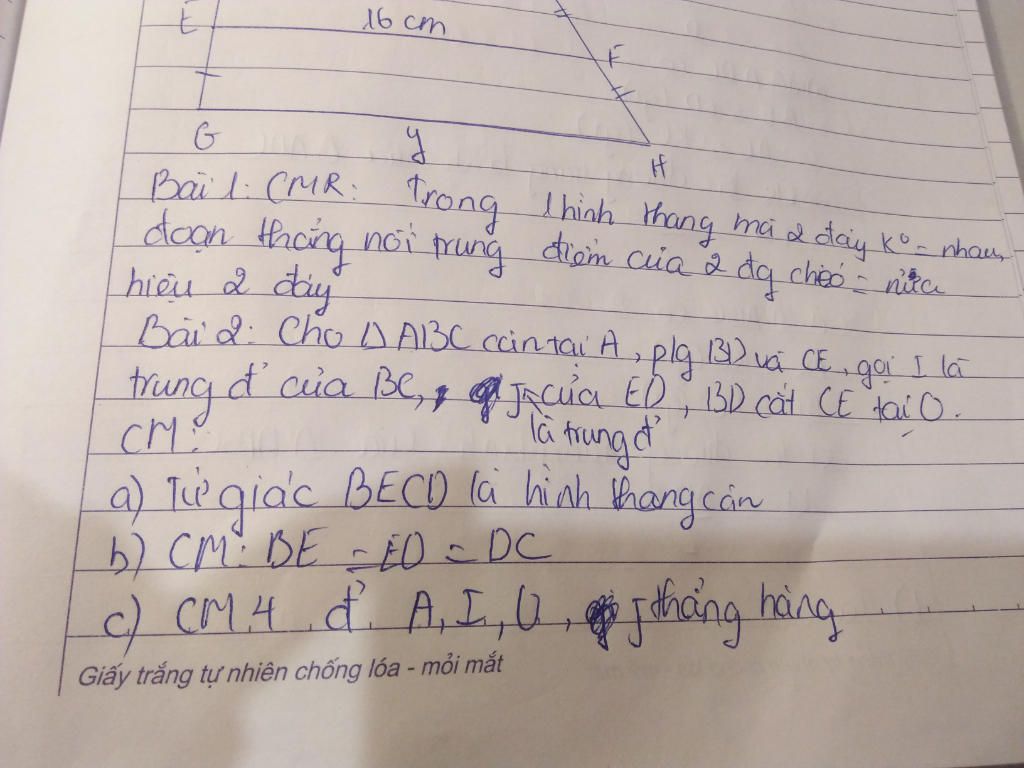 E 16 cm
F
G y H
Bài 1: CMR: trong 1 hình thang mà 2 đáy k° = nhau,
đoạn thẳng nối trung điểm của 2 đg chéo = nửa
hiệu 2 đáy
Bài 2: Cho Δ ABC cân tại A, p/g BD và CE, gọi I là
trung đ' của BC, J là trung đ' của ED, BD cắt CE tại O.
CM:
a) Tứ giác BECD là hình thang cân
b) CM: BE = ED = DC
c) CM 4 đ' A, I, O, J thẳng hàng
Giấy trắng tự nhiên chống lóa - mỏi mắt